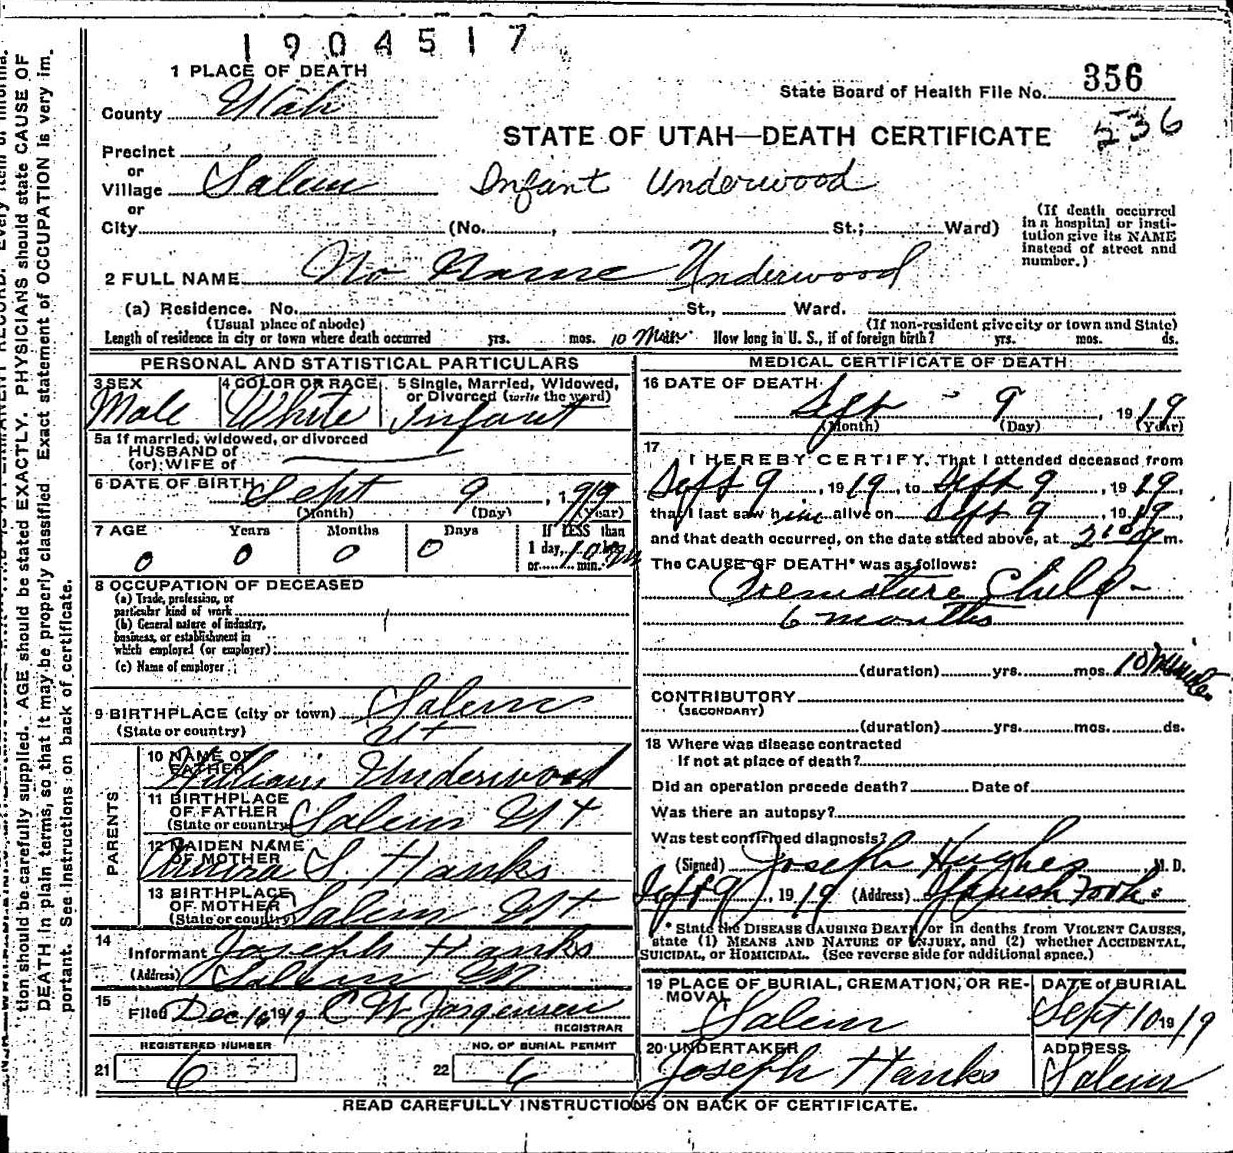 1904517
1 PLACE OF DEATH
356
State Board of Health File No.
536
County Utah
STATE OF UTAH—DEATH CERTIFICATE
Precinct
or
Village Salem
Infant Underwood
or
City (No. , St.; Ward)
(If death occurred in a hospital or insti-
tution give its NAME
instead of street and
number.)
2 FULL NAME No Name Underwood
(a) Residence. No. St., Ward.
(Usual place of abode) (If non-resident give city or town and State)
Length of residence in city or town where death occurred yrs. mos. 10 Min How long in U. S., if of foreign birth? yrs. mos. ds.
PERSONAL AND STATISTICAL PARTICULARS
3 SEX Male
4 COLOR OR RACE White
5 Single, Married, Widowed,
or Divorced (write the word)
Infant
5a If married, widowed, or divorced
HUSBAND of
(or) WIFE of
6 DATE OF BIRTH Sept 9, 1919
(Month) (Day) (Year)
7 AGE Years Months Days If LESS than
1 day, hrs.
or 10 min.
0 0 0 0
8 OCCUPATION OF DECEASED
(a) Trade, profession, or
particular kind of work
(b) General nature of industry,
business, or establishment in
which employed (or employer)
(c) Name of employer
9 BIRTHPLACE (city or town) Salem
(State or country) Ut
PARENTS
10 NAME OF
FATHER William Underwood
11 BIRTHPLACE
OF FATHER
(State or country) Salem Ut
12 MAIDEN NAME
OF MOTHER S. Hanks
13 BIRTHPLACE
OF MOTHER
(State or country) Salem Ut
14
Informant Joseph Hanks
(Address) Salem Ut
15
Filed Dec 16 1919 C W Jorgensen
REGISTRAR
REGISTERED NUMBER
21 6
NO. OF BURIAL PERMIT
22 6
MEDICAL CERTIFICATE OF DEATH
16 DATE OF DEATH
Sept - 9, 1919
(Month) (Day) (Year)
17
I HEREBY CERTIFY, That I attended deceased from
Sept 9, 1919, to Sept 9, 1919,
that I last saw him alive on Sept 9, 1919,
and that death occurred, on the date stated above, at m.
The CAUSE OF DEATH* was as follows:
Premature Child -
6 months
(duration) yrs. mos. 10 Minutes
CONTRIBUTORY
(SECONDARY)
(duration) yrs. mos. ds.
18 Where was disease contracted
If not at place of death?
Did an operation precede death? Date of
Was there an autopsy?
Was test confirmed diagnosis?
(Signed) Joseph Hughes M. D.
Sept 9, 1919 (Address) Spanish Fork
*State the DISEASE CAUSING DEATH, or in deaths from VIOLENT CAUSES,
state (1) MEANS AND NATURE OF INJURY, and (2) whether ACCIDENTAL,
SUICIDAL, or HOMICIDAL. (See reverse side for additional space.)
19 PLACE OF BURIAL, CREMATION, OR RE-
MOVAL
Salem
DATE of BURIAL
Sept 10 1919
20 UNDERTAKER
Joseph Hanks
ADDRESS
Salem
READ CAREFULLY INSTRUCTIONS ON BACK OF CERTIFICATE.
tion should be carefully supplied. AGE should be stated EXACTLY. PHYSICIANS should state CAUSE OF
DEATH in plain terms, so that it may be properly classified. Exact statement of OCCUPATION is very im-
portant. See instructions on back of certificate.